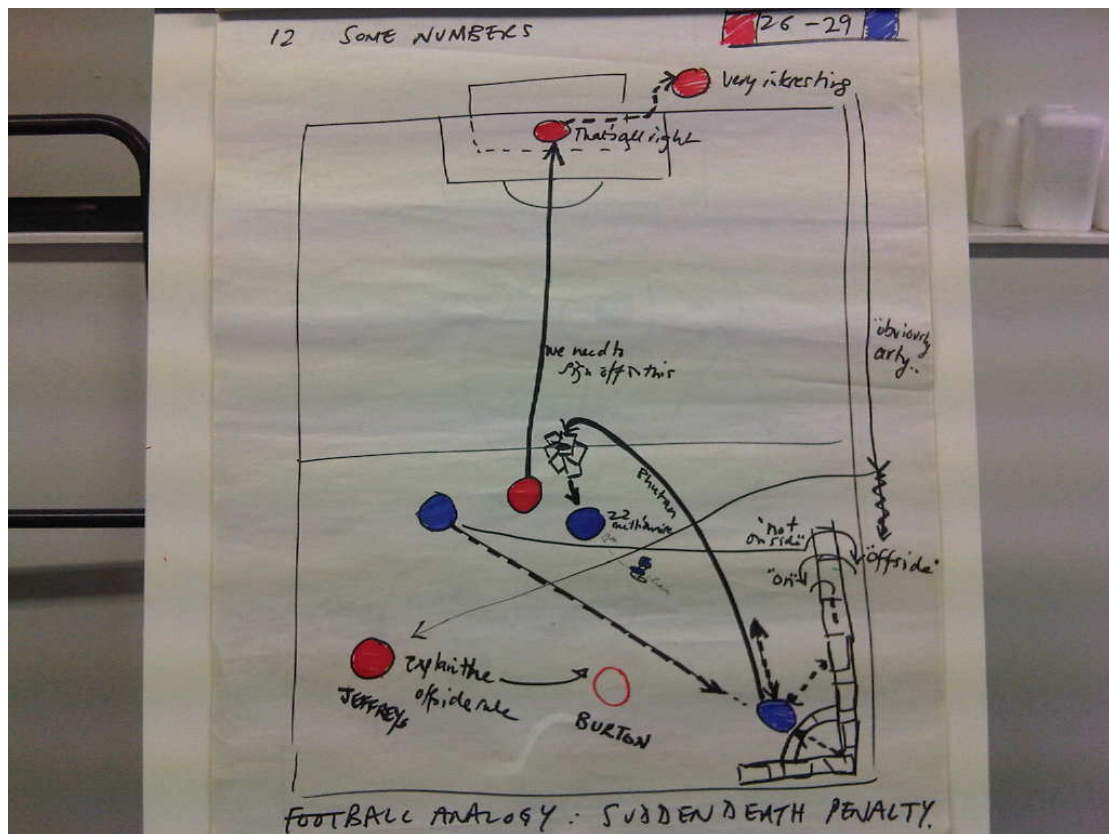 12 SOME NUMBERS
26 - 29
Very interesting
That's all right
"obviously
arty..
we need to
sign off on this
Bhutan
22
"not
on side"
"offside"
"on"
Explain the
offside rule
JEFFREYS
BURTON
FOOTBALL ANALOGY: SUDDEN DEATH PENALTY.